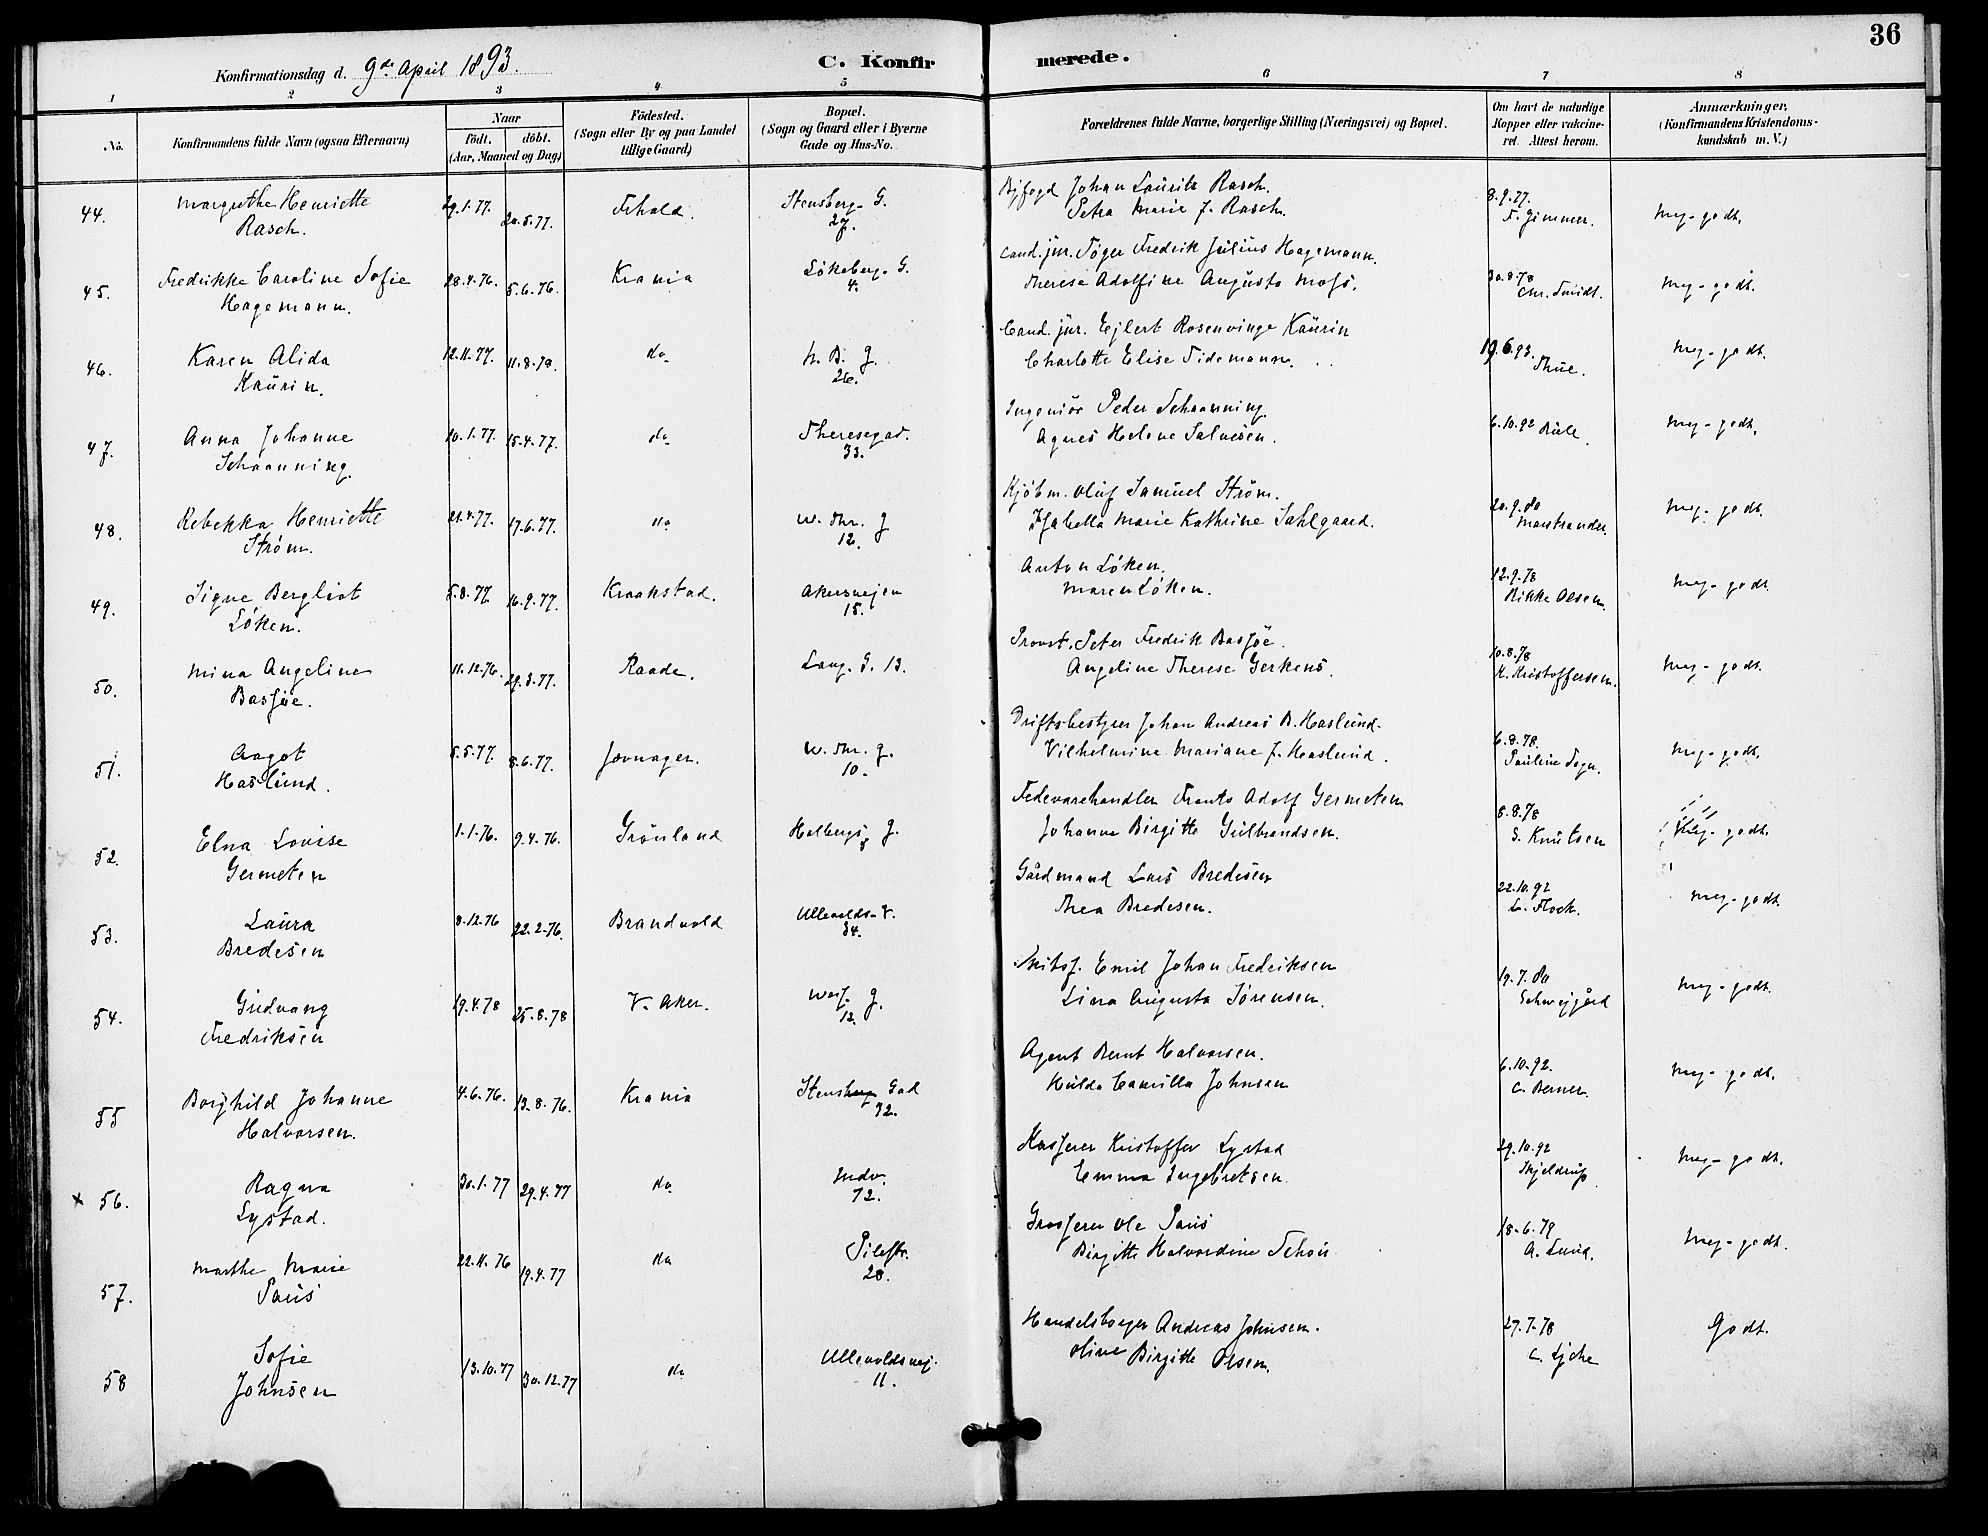 36
Konfirmationsdag d. 9de April 1893.
C. Konfirmerede.
1 2 3 4 5 6 7 8
No. Konfirmandens fulde Navn (ogsaa Efternavn) Naar Födt. döbt. (Aar, Maaned og Dag)
Födested. (Sogn eller By og paa Landet tillige Gaard)
Bopæl. (Sogn og Gaard eller i Byerne Gade og Hus-No.
Forældrenes fulde Navne, borgerlige Stilling (Næringsvei) og Bopæl.
Om havt de naturlige Kopper eller vakcineret. Attest herom.
Anmærkninger, (Konfirmandens Kristendomskundskab m. V.)
44. Margrethe Henriette 29.1.77. 20.5.77. Frhald. Stensberg. G. Byfogd Johan Lauritz Rasch. 8.9.77.
Rasch. 27. Petra Marie f. Rasch. F. Gimmer. Meg. godt.
45. Fredrikke Caroline Sofie 28.4.76. 5.6.76. Krania Lökeberg. G. Cand. jur. Töger Fredrik Julius Hagemann. 30.8.78
Hagemann. 4. Therese Adolfine Augusta Moss. Chr. Smidt. Meg. godt.
46. Karen Alida 12.11.77. 11.8.78. do. h. B. g. Cand. jur. Ejlert Rosenvinge Kaurin 19.6.93.
Kaurin. 26. Charlotte Elise Tidemann. Thue. Meg. godt.
47. Anna Johanne 10.1.77. 15.4.77. do. Theresegad. Ingeniör Peder Schaanning. 6.10.92
Schaanning. 33. Agnes Helene Salvesen. Meg. godt.
48. Rebekka Henriette 21.4.77. 17.6.77. do W. Thr. g Kjöbm. Oluf Samuel Ström. 20.9.80
Ström. 12. Isabella Marie Kathrine Dahlgaard. Marstrander. Meg. godt.
49. Signe Bergliot 5.8.77. 16.9.77. Kraakstad. Akersvejen Anton Löken. 12.9.78
Löken. 15. Maren Löken. Rikke Olsen. Meg. godt.
50. Mina Angeline 11.12.76. 29.3.77. Raade. Lang. G. 13. Provst. Peter Fredrik Bassöe. 10.8.78
Bassöe. Angeline Therese Gerkens. K. Kristoffersen. Meg. godt.
51. Aagot 5.5.77. 8.6.77. Jevnager. W. Thr. g. Driftsbestyrer Johan Andreas B. Haslund. 6.8.78.
Haslund. 10. Vilhelmine Mariane f. Haslund. Pauline Fogn. Meg. godt.
52. Elna Lovise 1.1.76. 9.4.76. Grönland Holbergs g. Fedevarehandler Frants Adolf Germeten 8.8.78
Germeten 5 Johanne Birgitte Gulbrandsen. S. Knutsen Meg. godt.
53. Laura 8.12.76 22.2.76. Brandvold Ullevolds. V. Gårdmand Lars Bredesen 22.10.92
Bredesen 34. Thea Bredesen. L. Flock. Meg. godt.
54. Gudvang 19.4.78 25.8.78 V. Aker. Wess. g. Emil Johan Fredriksen 19.7.80
Fredriksen 12. Lina Augusta Sörensen. Schwejgård Meg. godt.
55 Borghild Johanne 4.6.76. 13.8.76. Krania Stensberg Gad Agent Bernt Halvorsen. 6.10.92.
Halvorsen. 32. Hulda Camilla Johnsen C. Berner. Meg. godt.
x 56. Ragna 30.1.77 29.4.77 do. Undv. Kasserer Kristoffer Lystad 29.10.92
Lystad. 72. Emma Ingebretsen. Skjeldrup Meg. godt.
57. Marthe Marie 22.11.76 19.4.77 do Pilestr. Grosserer Ole Paus 18.6.79
Paus 28. Birgitte Halvordine Schou A. Lund. Meg. godt.
58 Sofie 13.10.77 30.12.77 do Ullevoldsvej. Handelsborger Andreas Johnsen. 27.7.78
Johnsen 11. Oline Birgitte Olsen. L. Lyche Godt.